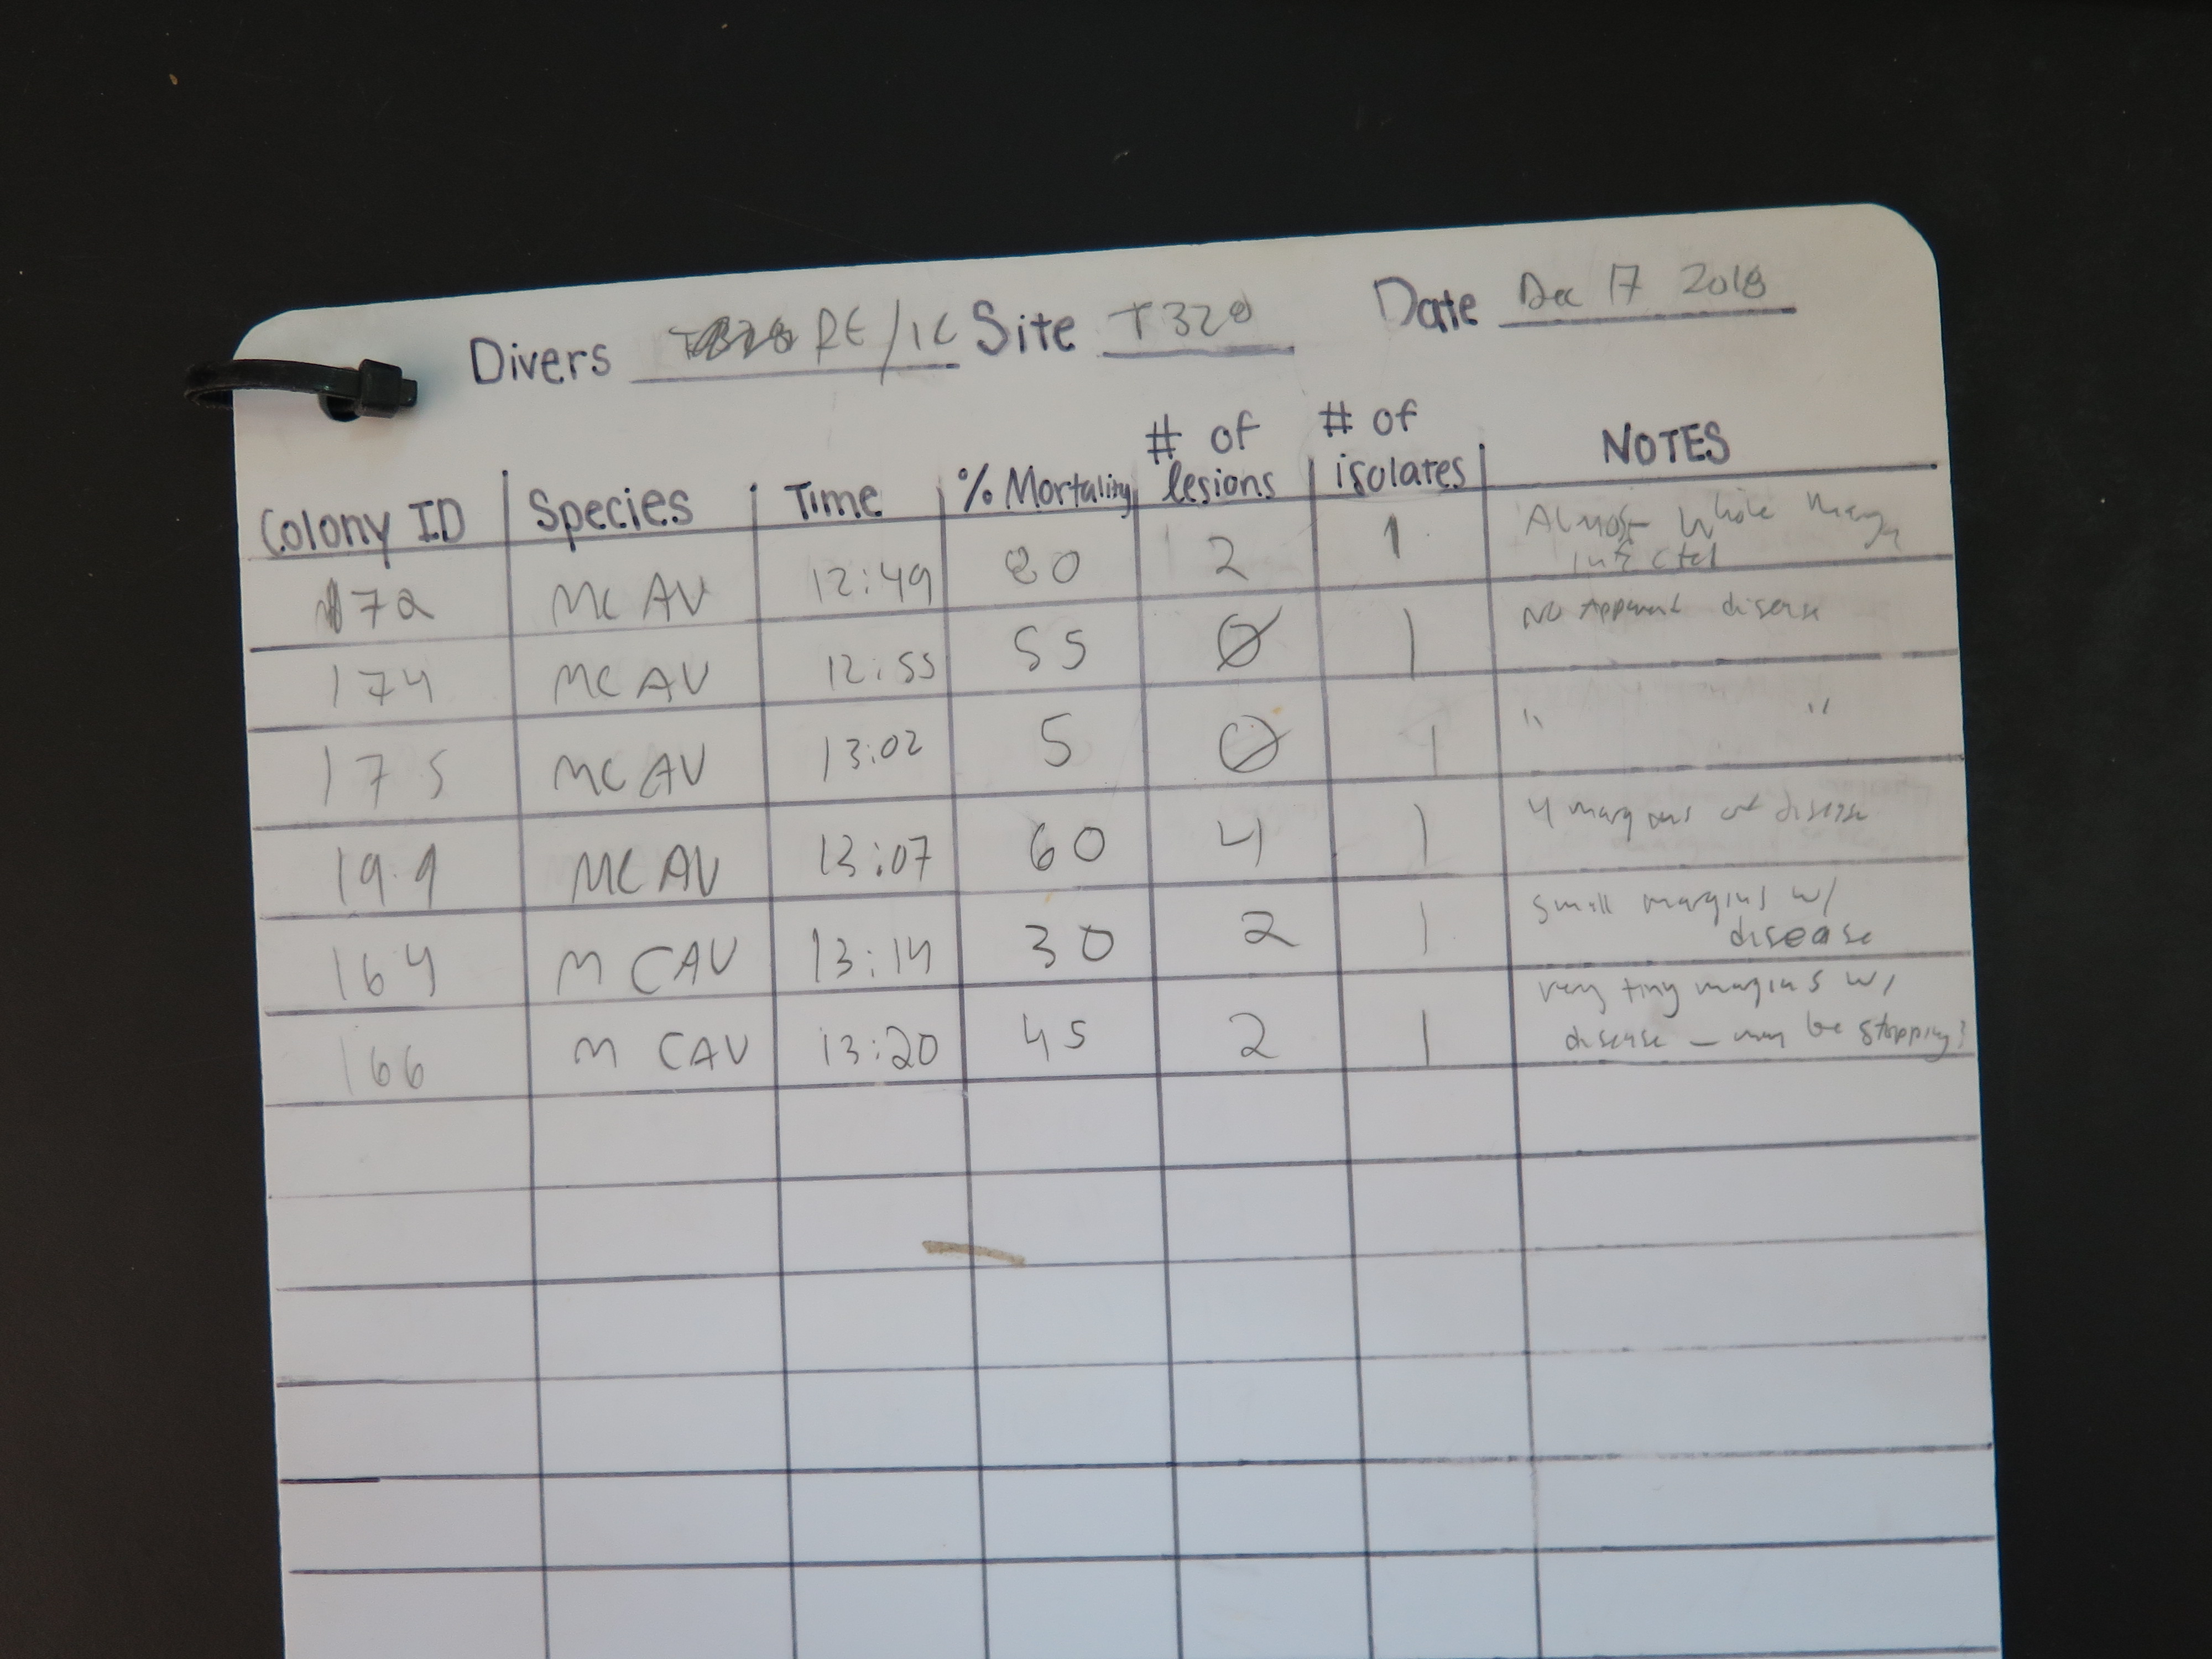 Divers RE/IC Site T320 Date Dec 17 2018
Colony ID Species Time % Mortality # of lesions # of isolates NOTES
172 MCAV 12:49 80 2 1 Almost whole margin
infected
174 MCAV 12:55 55 Ø 1 No apparent disease
175 MCAV 13:02 5 Ø 1 " "
199 MCAV 13:07 60 4 1 4 margins of disease
164 MCAV 13:14 30 2 1 small margins w/
disease
166 MCAV 13:20 45 2 1 very tiny margins w/
disease – may be stopping?